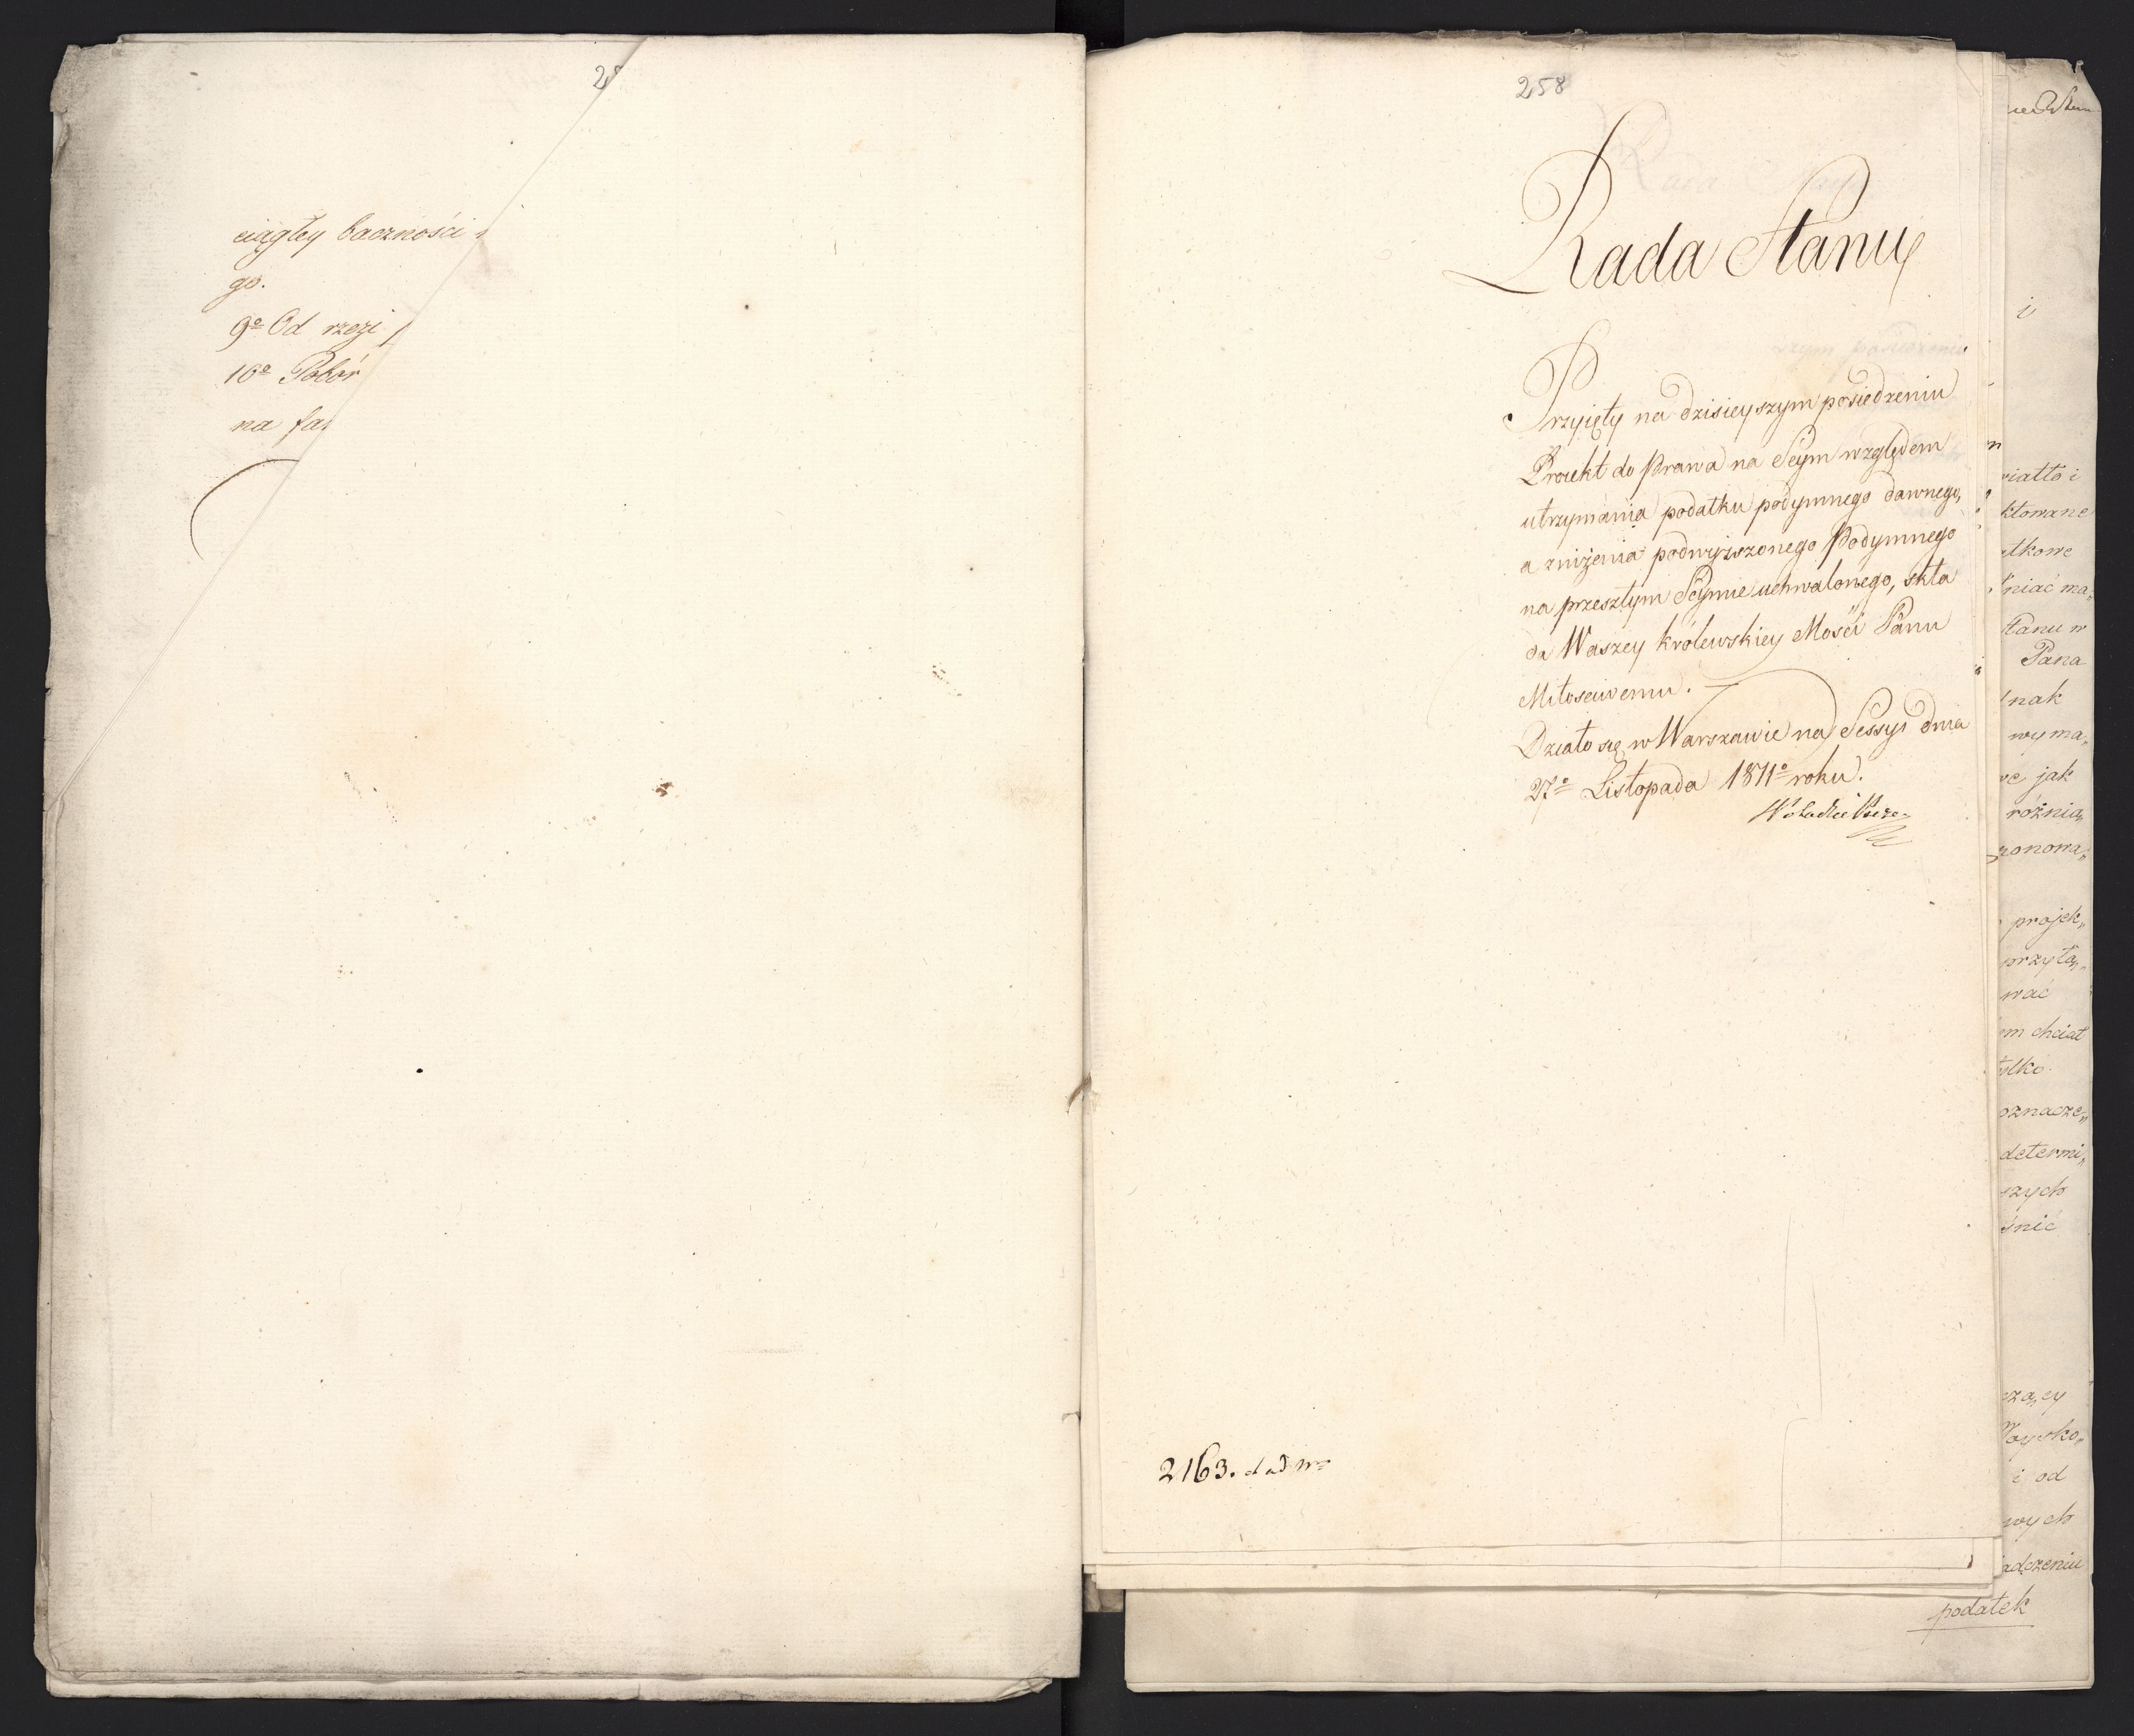 ciągłey baczności
go.
9º Od rzezi
10º Pobór
na
258
Rada Stanu
Przyięty na dzisieyszym posiedzeniu
Proiekt do Prawa na Seym względem
utrzymania podatku podymnego dawnego,
a zniżenia podwyższonego Podymnego
na przeszłym Seymie uchwalonego, skła
da Waszey Królewskiey Mości Panu
Miłościwemu.
Działo się w Warszawie na Sessyi dnia
27º Listopada 1811º roku.
2163.
i
ktowane
niać ma„
Stanu w
Pana
wyma„
jak
różnia„
projek„
przyta„
wać
chciał
oznacze„
determi„
szych
i od
wych
podatek